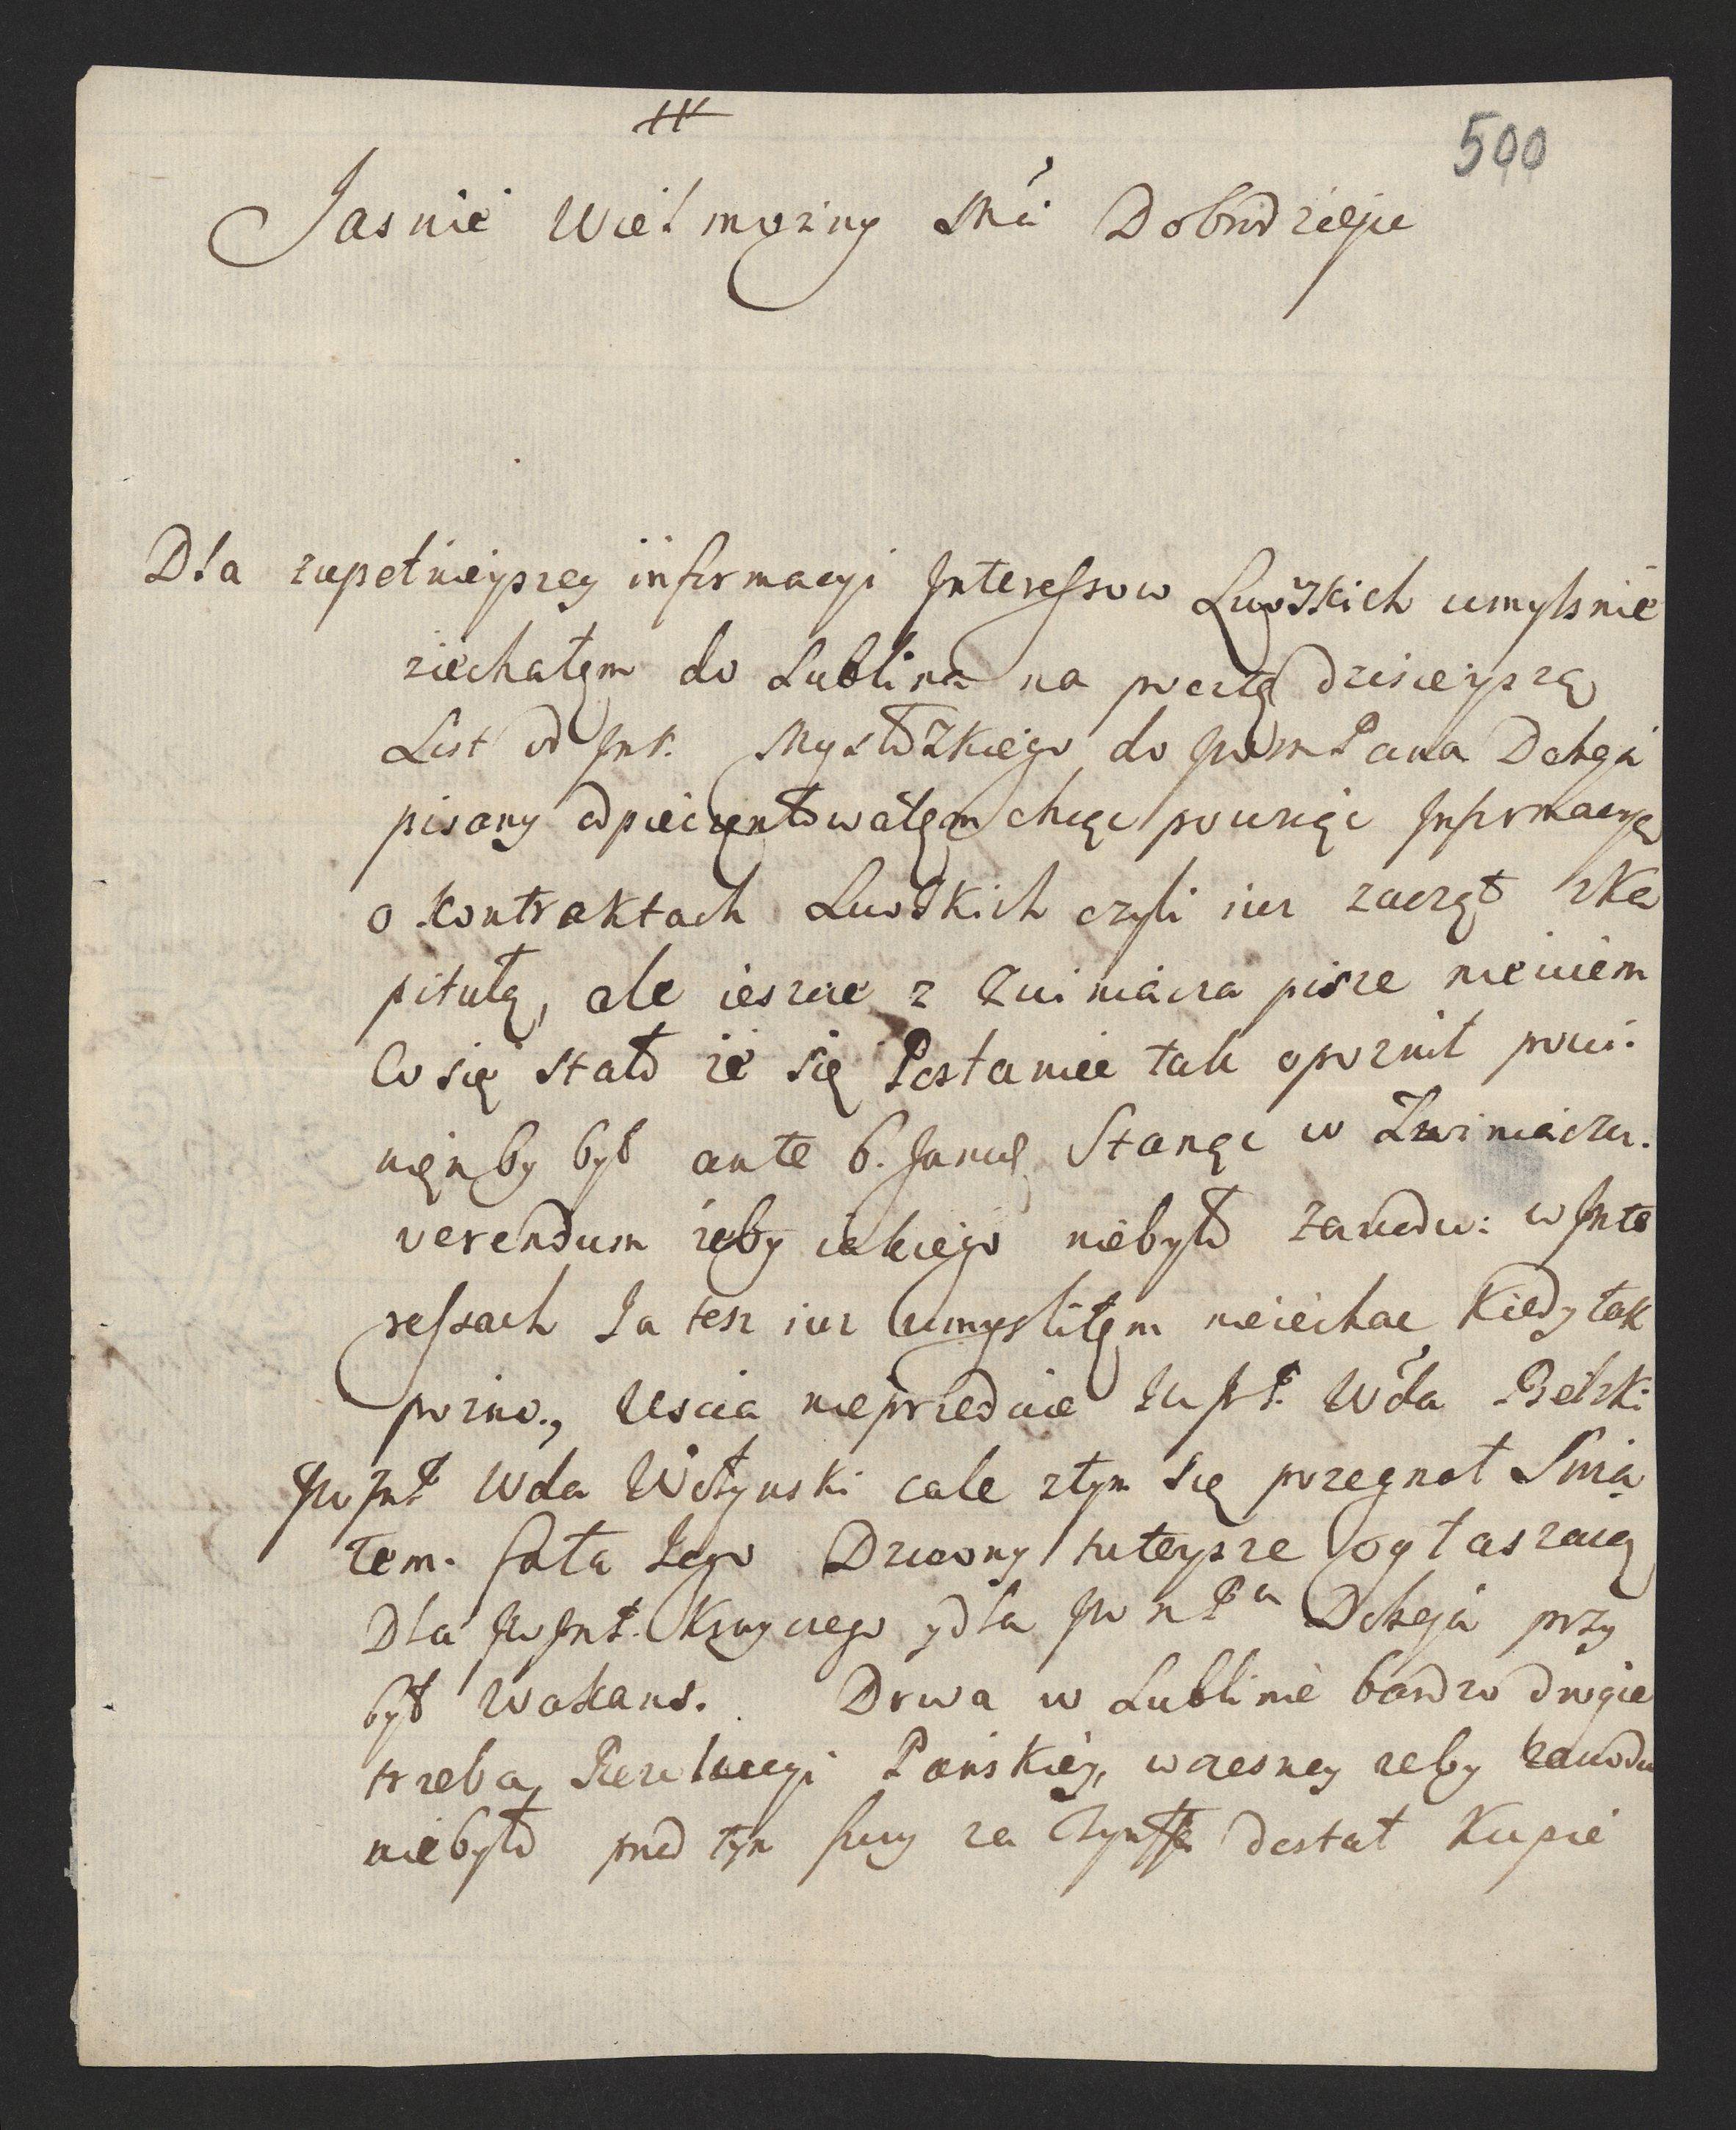 500
Jasnie Wielmozny Mci Dobrodzieju
Dla zupełnieyszey informacyi Interessow Lwoskich umyslnie
ziechałęm do Lublina na pocztę dzisieyszą
List od Jmć Mysłoskiego do Pana Dobgi
pisany odpieczęntowałęm chcąc powziąć Informacyą
o kontraktach Lwoskich czyli iuz zaczął zka
pitułą, ale ieszcze z Zwiniacza pisze niewiem
Co się stało że się Postaniec tak opoznił powi.
nięnby był ante 6. Januä Stanąc w Zwiniaczu.
verendum żeby iakiego niebyło zawodu: w Inte
ressach Ja tesz iuz umysliłęm nieiechac kiedy tak
pozno., Uscia nieprzedaie Wda Bełzki
Wda Wołynski cale ztym się pozegnał Swia
tem. fata Jego Dzwony tuteysze ogłaszaią
Dla y dla Dobgi przy
był Wakans. Drwa w Lublinie bardzo drogie
trzeba Rezolucyi Pańskiey, wczesney zeby zawodu
niebyło przed tym fury za Tynffa dostał Kupić